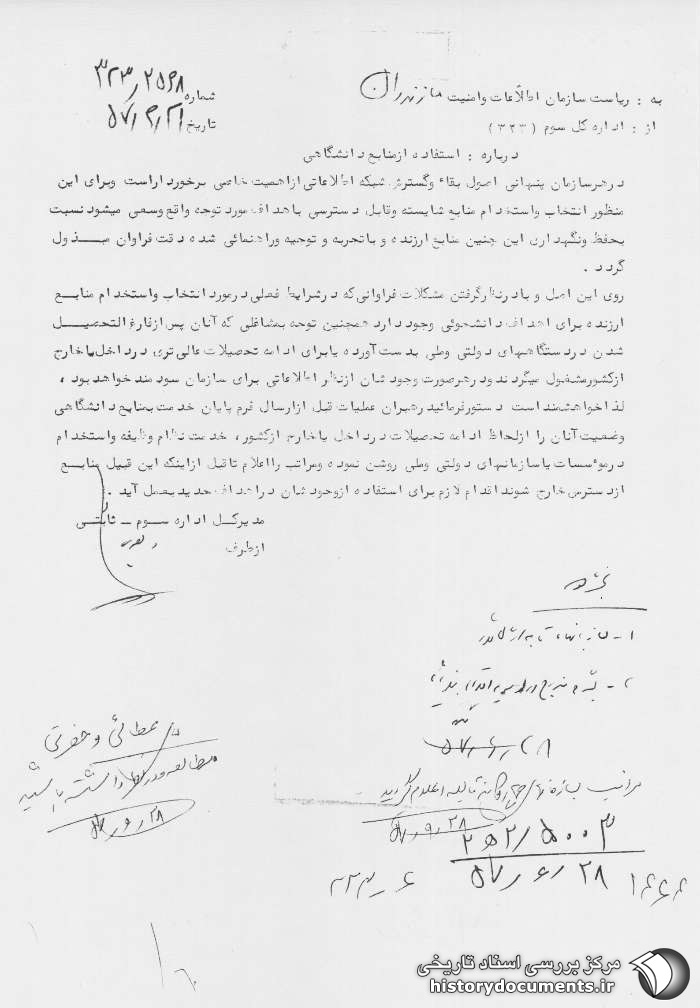 به : ریاست سازمان اطلاعات وامنیت مازندران
شماره ۳۲۳/۲۵۶۸
از : اداره کل سوم (۳۲۳)
تاریخ
درباره : استفاده ازمنابع دانشگاهی
درهرسازمان پنهانی اصول بقاء وگسترش شبکه اطلاعاتی ازاهمیت خاصی برخورداراست وبرای این
منظور انتخاب واستخدام منابع شایسته وقابل دسترسی باهداف مورد توجه واقع وسعی میشود نسبت
بحفظ ونگهداری این چنین منابع ارزنده و باتجربه و توجیه وراهنمائی شده دقت فراوان مبذول
گردد .
روی این اصل و بادرنظرگرفتن مشکلات فراوانی که درشرایط فعلی درمورد انتخاب واستخدام منابع
ارزنده برای اهداف دانشجوئی وجود دارد همچنین توجه بمشاغلی که آنان پس ازفارغ التحصیل
شدن دردستگاههای دولتی وملی بدست آورده یابرای ادامه تحصیلات عالی تری درداخل یاخارج
ازکشورمشغول میگردند ودرهرصورت وجودشان ازنظر اطلاعاتی برای سازمان سودمند خواهد بود ،
لذا خواهشمند است دستورفرمائید رهبران عملیات قبل ازارسال فرم پایان خدمت بمنابع دانشگاهی
وضعیت آنان را ازلحاظ ادامه تحصیلات درداخل یاخارج ازکشور ، خدمت نظام وظیفه واستخدام
درموئسسات یاسازمانهای دولتی وملی روشن نموده ومراتب رااعلام تاقبل ازاینکه این قبیل منابع
ازدسترس خارج شوند اقدام لازم برای استفاده ازوجودشان دراهداف جدید بعمل آید .
مدیرکل اداره سوم ــ ثابتی
ازطرف
۱ــ
۲ــ
۵۷/۶/۲۸
عطائی و
مطالعه ودر نظر داشته باشید
مراتب اعلام گردید
۵۰۰۳/۲ه۲
۵۷/۶/۲۸
مرکز بررسی اسناد تاریخی
historydocuments.ir